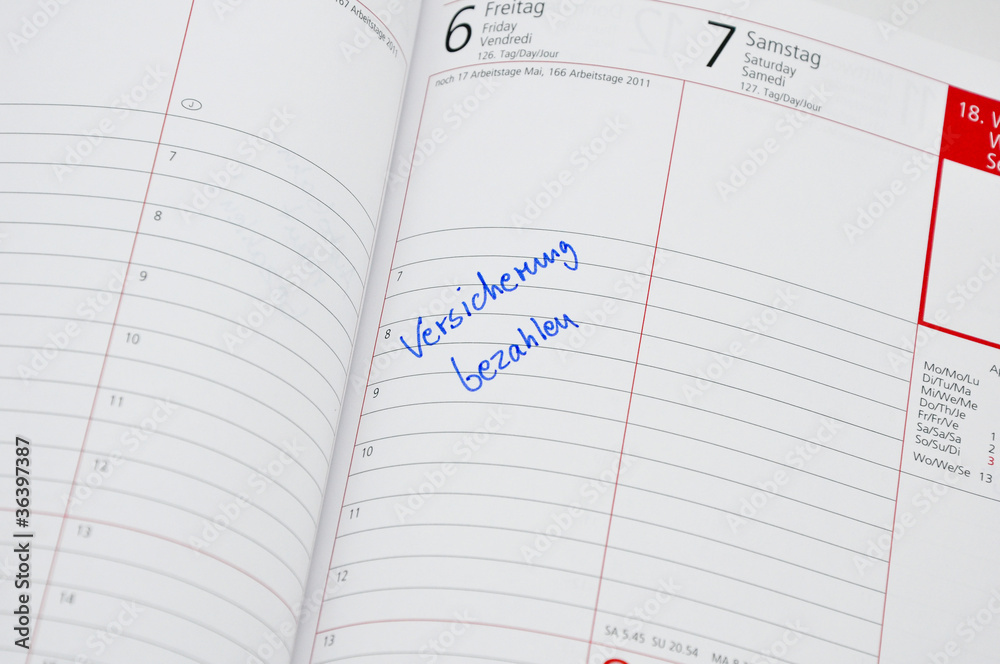 167 Arbeitstage 2011
J
7
8
9
10
11
12
13
14
6 Freitag
Friday
Vendredi
126. Tag/Day/Jour
noch 17 Arbeitstage Mai, 166 Arbeitstage 2011
7
8
9
10
11
12
13
Versicherung
bezahlen
7 Samstag
Saturday
Samedi
127. Tag/Day/Jour
SA 5.45 SU 20.54
18.
Mo/Mo/Lu
Di/Tu/Ma
Mi/We/Me
Do/Th/Je
Fr/Fr/Ve 1
Sa/Sa/Sa 2
So/Su/Di 3
Wo/We/Se 13
Adobe Stock | #36397387